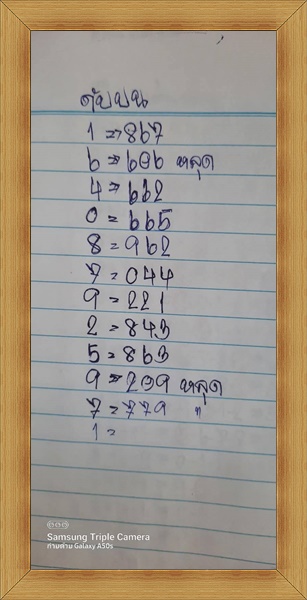 ดับบน
1 => 867
6 => 606 หลุด
4 => 662
0 = 665
8 = 962
7 = 044
9 = 221
2 = 843
5 = 863
9 => 239 หลุด
7 = 779 "
1 =
Samsung Triple Camera
ถ่ายด้วย Galaxy A50s